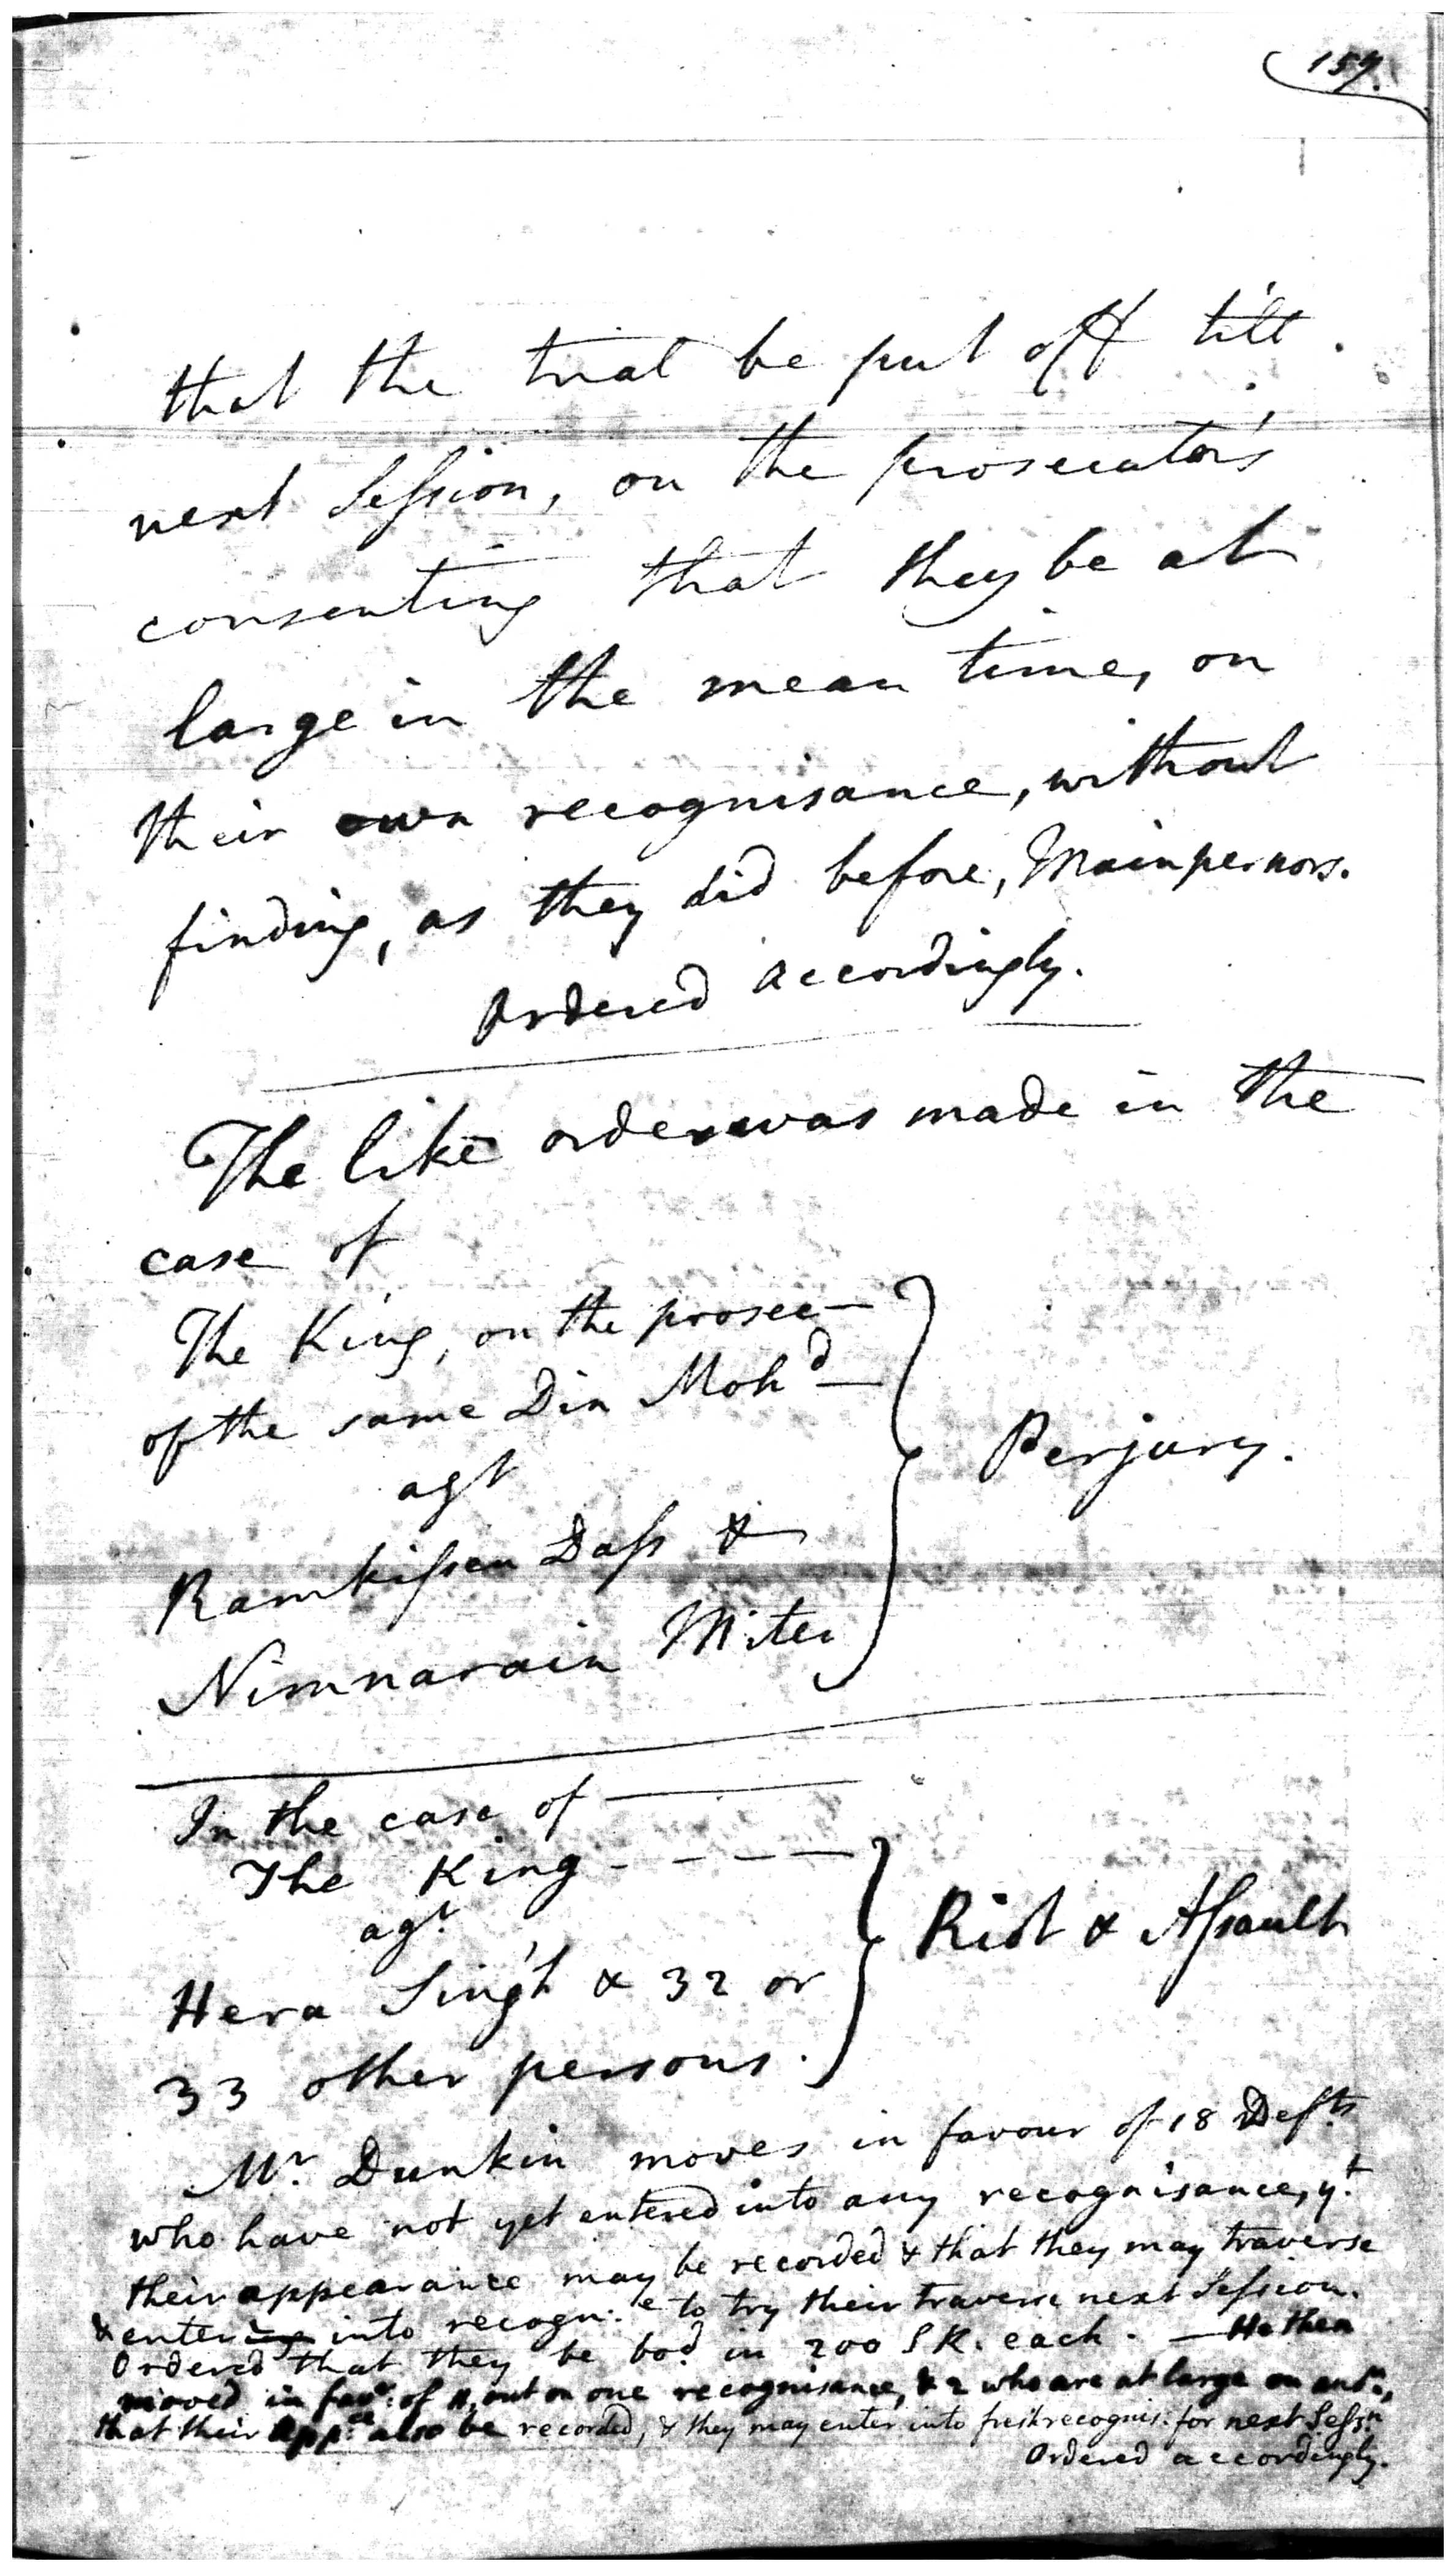 157.
that the trial be put off till
next Seſsion, on the prosecutor's
consenting that they be at
large in the mean time, on
their own recognisance, without
finding, as they did before, Mainpernors.
Ordered accordingly.
The like order was made in the
case of
The King, on the prosec—
of the same Din Mohd—
agt
Ramkiſsen Daſs &
Nimnarain Miter
Perjury.
In the case of
The King - - - -
agt.
Hera Sing'h & 32 or
33 other persons.
Riot & Aſsault
Mr. Dunkin moves in favour of 18 Defts
who have not yet entered into any recognisance, yt.
their appearance may be recorded & that they may traverse
& enter into recogn:e to try their traverse next Seſsion.
Ordered that they be bod. in 200 SR. each. — He then
moved in favr. of 11, out on one recognisance, & 2 who are at large on anor.,
that their appce. also be recorded, & they may enter into fresh recognis: for next Seſsn.
Ordered accordingly.